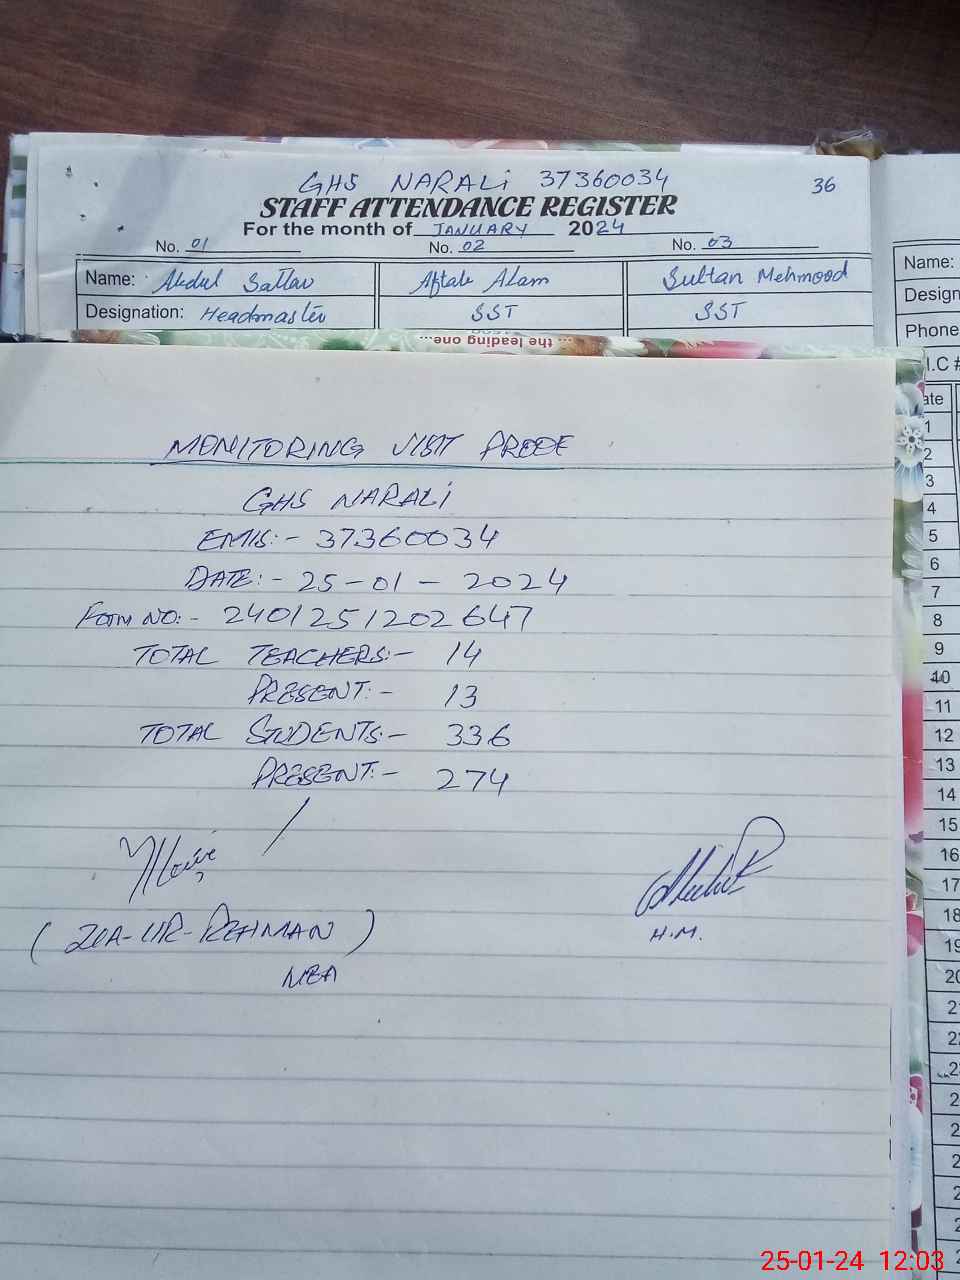 GHS NARALi 37360034
36
STAFF ATTENDANCE REGISTER
For the month of JANUARY 2024
No. 01 No. 02 No. 03
Name: Abdul Sattar Aftab Alam Sultan Mehmood
Designation: Headmaster SST SST
... the leading one...
Name:
Design
Phone
I.C #
ate
1
2
3
4
5
6
7
8
9
10
11
12
13
14
15
16
17
18
19
20
MONITORING VISIT PROOF
GHS NARALi
EMIS:- 37360034
DATE:- 25-01-2024
Form NO:- 2401251202647
TOTAL TEACHERS:- 14
PRESENT:- 13
TOTAL STUDENTS:- 336
PRESENT:- 274
(ZIA-UR-REHMAN)
MEA
H.M.
25-01-24 12:03